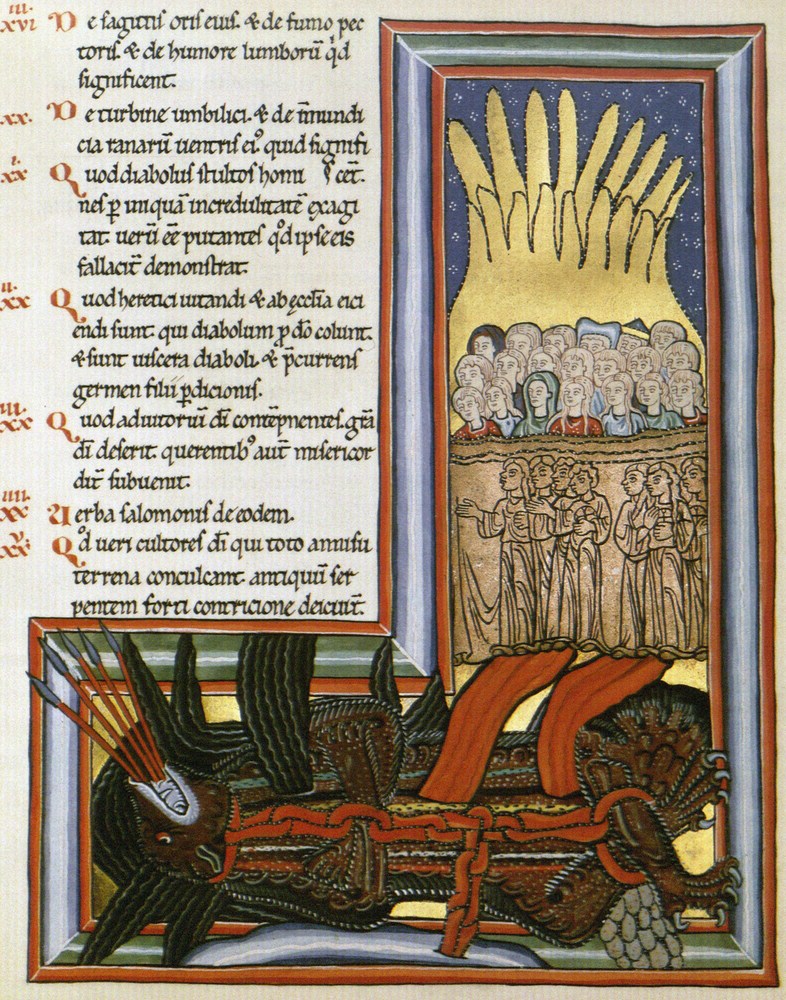 iii. xvi De sagittis oris eius. & de fumo pec
toris. & de humore lumborū q̇d
significent.
xx. De turbine umbilici. & de īmundi
cia ranarū uentris ei⁹ quid signifi
i. xx Quod diabolus stultos homi cēt.
nes ꝑ uniquā incredulitatē exagi
tat. uerū eē putantes q̊d ipse eis
fallacit̄ demonstrat.
ii. xx Quod heretici uitandi & ab ęcclīa eici
endi sunt. qui diabolum ꝓ dō colunt.
& sunt uiscera diaboli. & p̄currens
germen filii ꝑdicionis.
iii. xx Quod adiutoriū dī contēpnentes. grā
dī deserit. querentib⁹ aut̄ misericor
dit̄ subuenit.
iiii. xx Uerba salomonis de eodem.
v. xx Qd̊ ueri cultores dī qui toto annisu
terrena conculcant. antiquū ser
pentem forti contricione deiciūt.